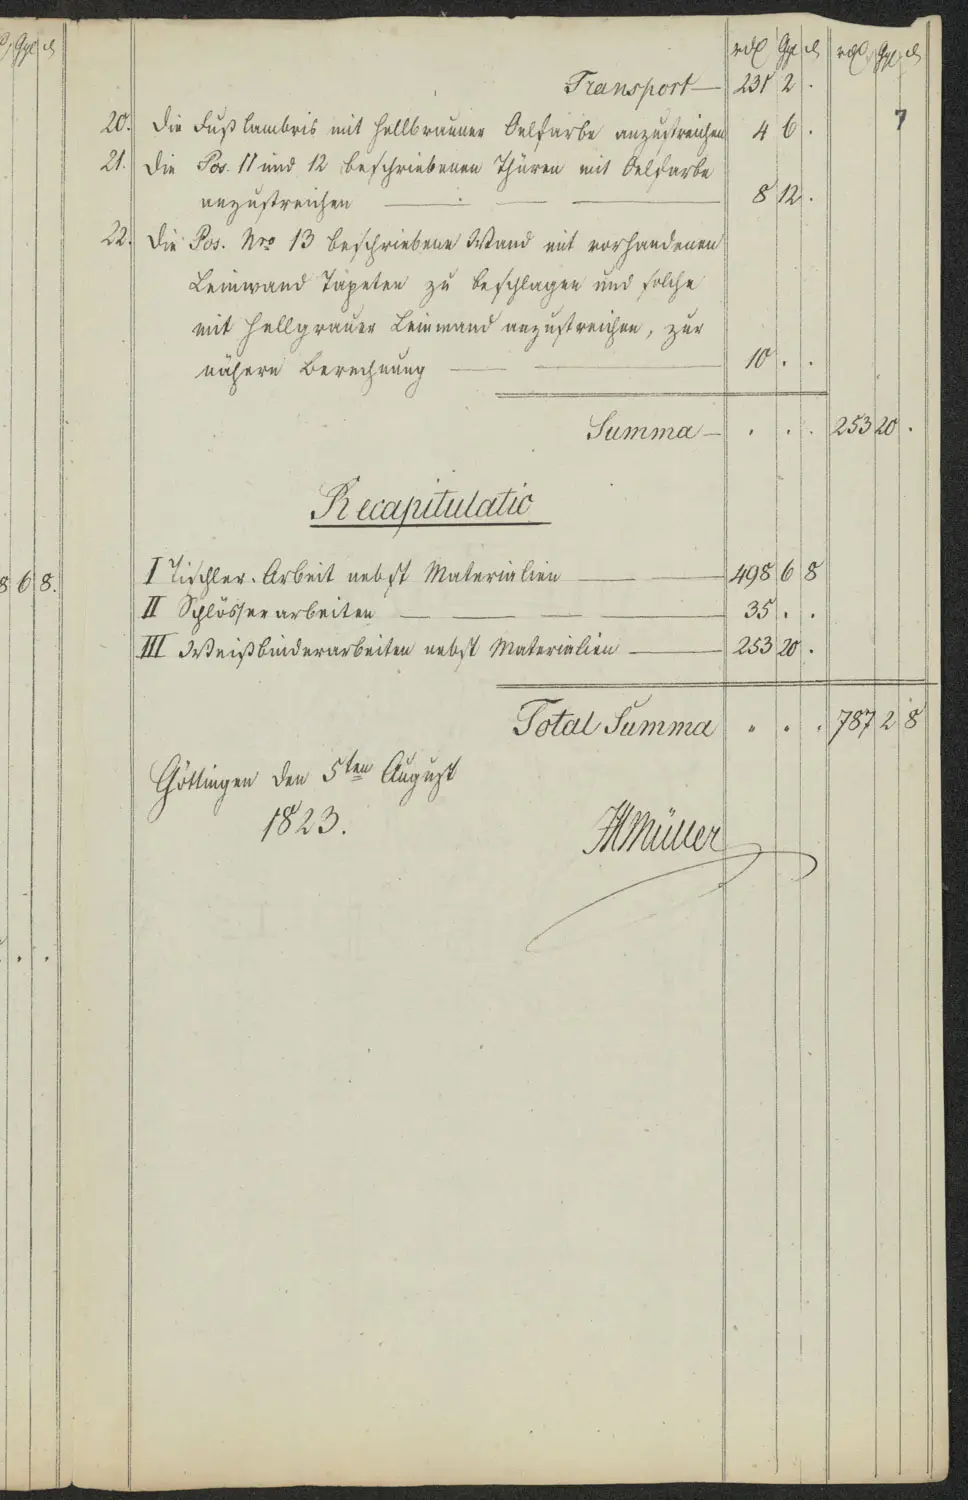 Ggl d
rthl Ggl d rthl Ggl d
Transport — 231 2 .
7
20. Die Fußlambris mit hellbrauner Oelfarbe anzustreichen 4 6 .
21. Die Pos. 11 und 12 beschriebenen Thüren mit Oelfarbe
anzustreichen — 8 12 .
22. Die Pos. Nro 13 beschriebene Wand mit vorhandenen
Leinwand Tapeten zu beschlagen und solche
mit hellgrauer Leinwand anzustreichen, zur
nähern Berechnung — 10 . .
Summa — . . . 253 20 .
Recapitulatio
I Tischler-Arbeit nebst Materialien — 498 6 8
8 6 8.
II Schlösserarbeiten — 35 . .
III Weißbinderarbeiten nebst Materialien — 253 20 .
Total Summa . . . 787 2 8
Göttingen den 5ten August
1823.
Müller